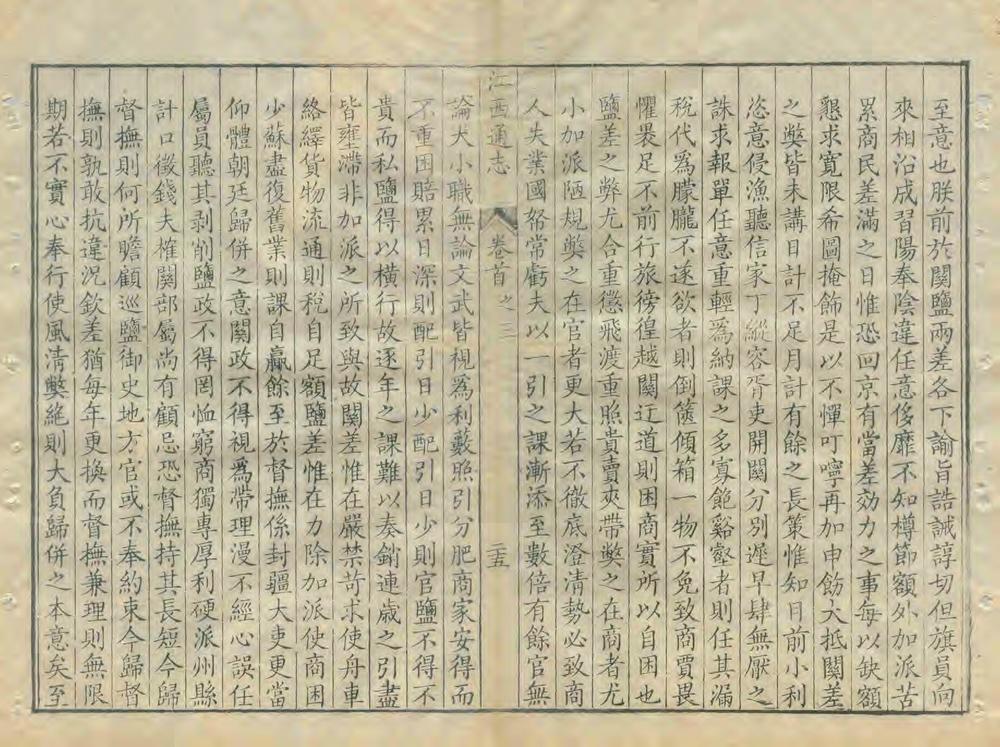 至意也朕前於關鹽兩差各下諭旨誥誡諄切但旗員向
來相沿成習陽奉陰違任意侈靡不知樽節額外加派苦
累商民差滿之日惟恐回京有當差効力之事每以缺額
懇求寛限希圖掩飾是以不憚叮嚀再加申飭大抵關差
之獘皆未講日計不足月計有餘之長策惟知目前小利
恣意侵漁聽信家丁縱容胥吏開關分别遲早肆無厭之
誅求報單任意重輕爲納課之多寡飽谿壑者則任其漏
稅代爲朦朧不遂欲者則倒篋傾箱一物不免致商賈畏
懼褁足不前行旅徬徨越關迂道則困商實所以自困也
鹽差之弊尤合重懲飛渡重照貴賣夾帶獘之在商者尤
小加派陋規獘之在官者更大若不徹底澄清勢必致商
人失業國帑常虧夫以一引之課漸添至數倍有餘官無
江西通志
卷首之三
二五
論大小職無論文武皆視爲利藪照引分肥商家安得而
不重困賠累日深則配引日少配引日少則官鹽不得不
貴而私鹽得以橫行故逐年之課難以奏銷連歲之引盡
皆壅滯非加派之所致與故關差惟在嚴禁苛求使舟車
絡繹貨物流通則稅自足額鹽差惟在力除加派使商困
少蘇盡復舊業則課自贏餘至於督撫係封疆大吏更當
仰體朝廷歸併之意關政不得視爲帶理漫不經心誤任
屬員聽其剥削鹽政不得罔恤窮商獨專厚利硬派州縣
計口徵錢夫榷關部屬尚有顧忌恐督撫持其長短今歸
督撫則何所瞻顧巡鹽御史地方官或不奉約束今歸督
撫則孰敢抗違況欽差猶每年更換而督撫兼理則無限
期若不實心奉行使風清獘絶則大負歸併之本意矣至